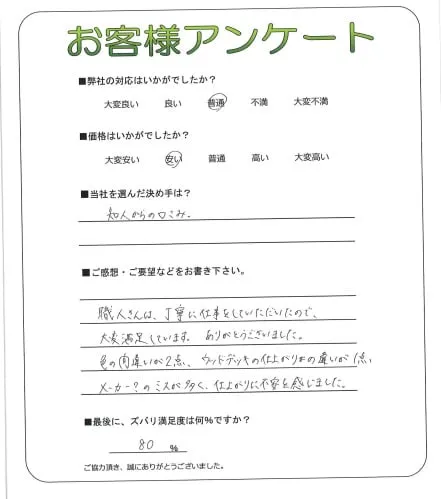 お客様アンケート
■弊社の対応はいかがでしたか?
大変良い 良い 普通 不満 大変不満
■価格はいかがでしたか?
大変安い 安い 普通 高い 大変高い
■当社を選んだ決め手は?
知人からの口コミ.
■ご感想・ご要望などをお書き下さい。
職人さんは、丁寧に仕事をしていただいたので、
大変満足しています。 ありがとうございました。
色の間違いが2点、ウッドデッキの仕上がりの違いが1点、
メーカー?のミスが多く、仕上がりに不安を感じました。
■最後に、ズバリ満足度は何%ですか?
80 %
ご協力頂き、誠にありがとうございました。